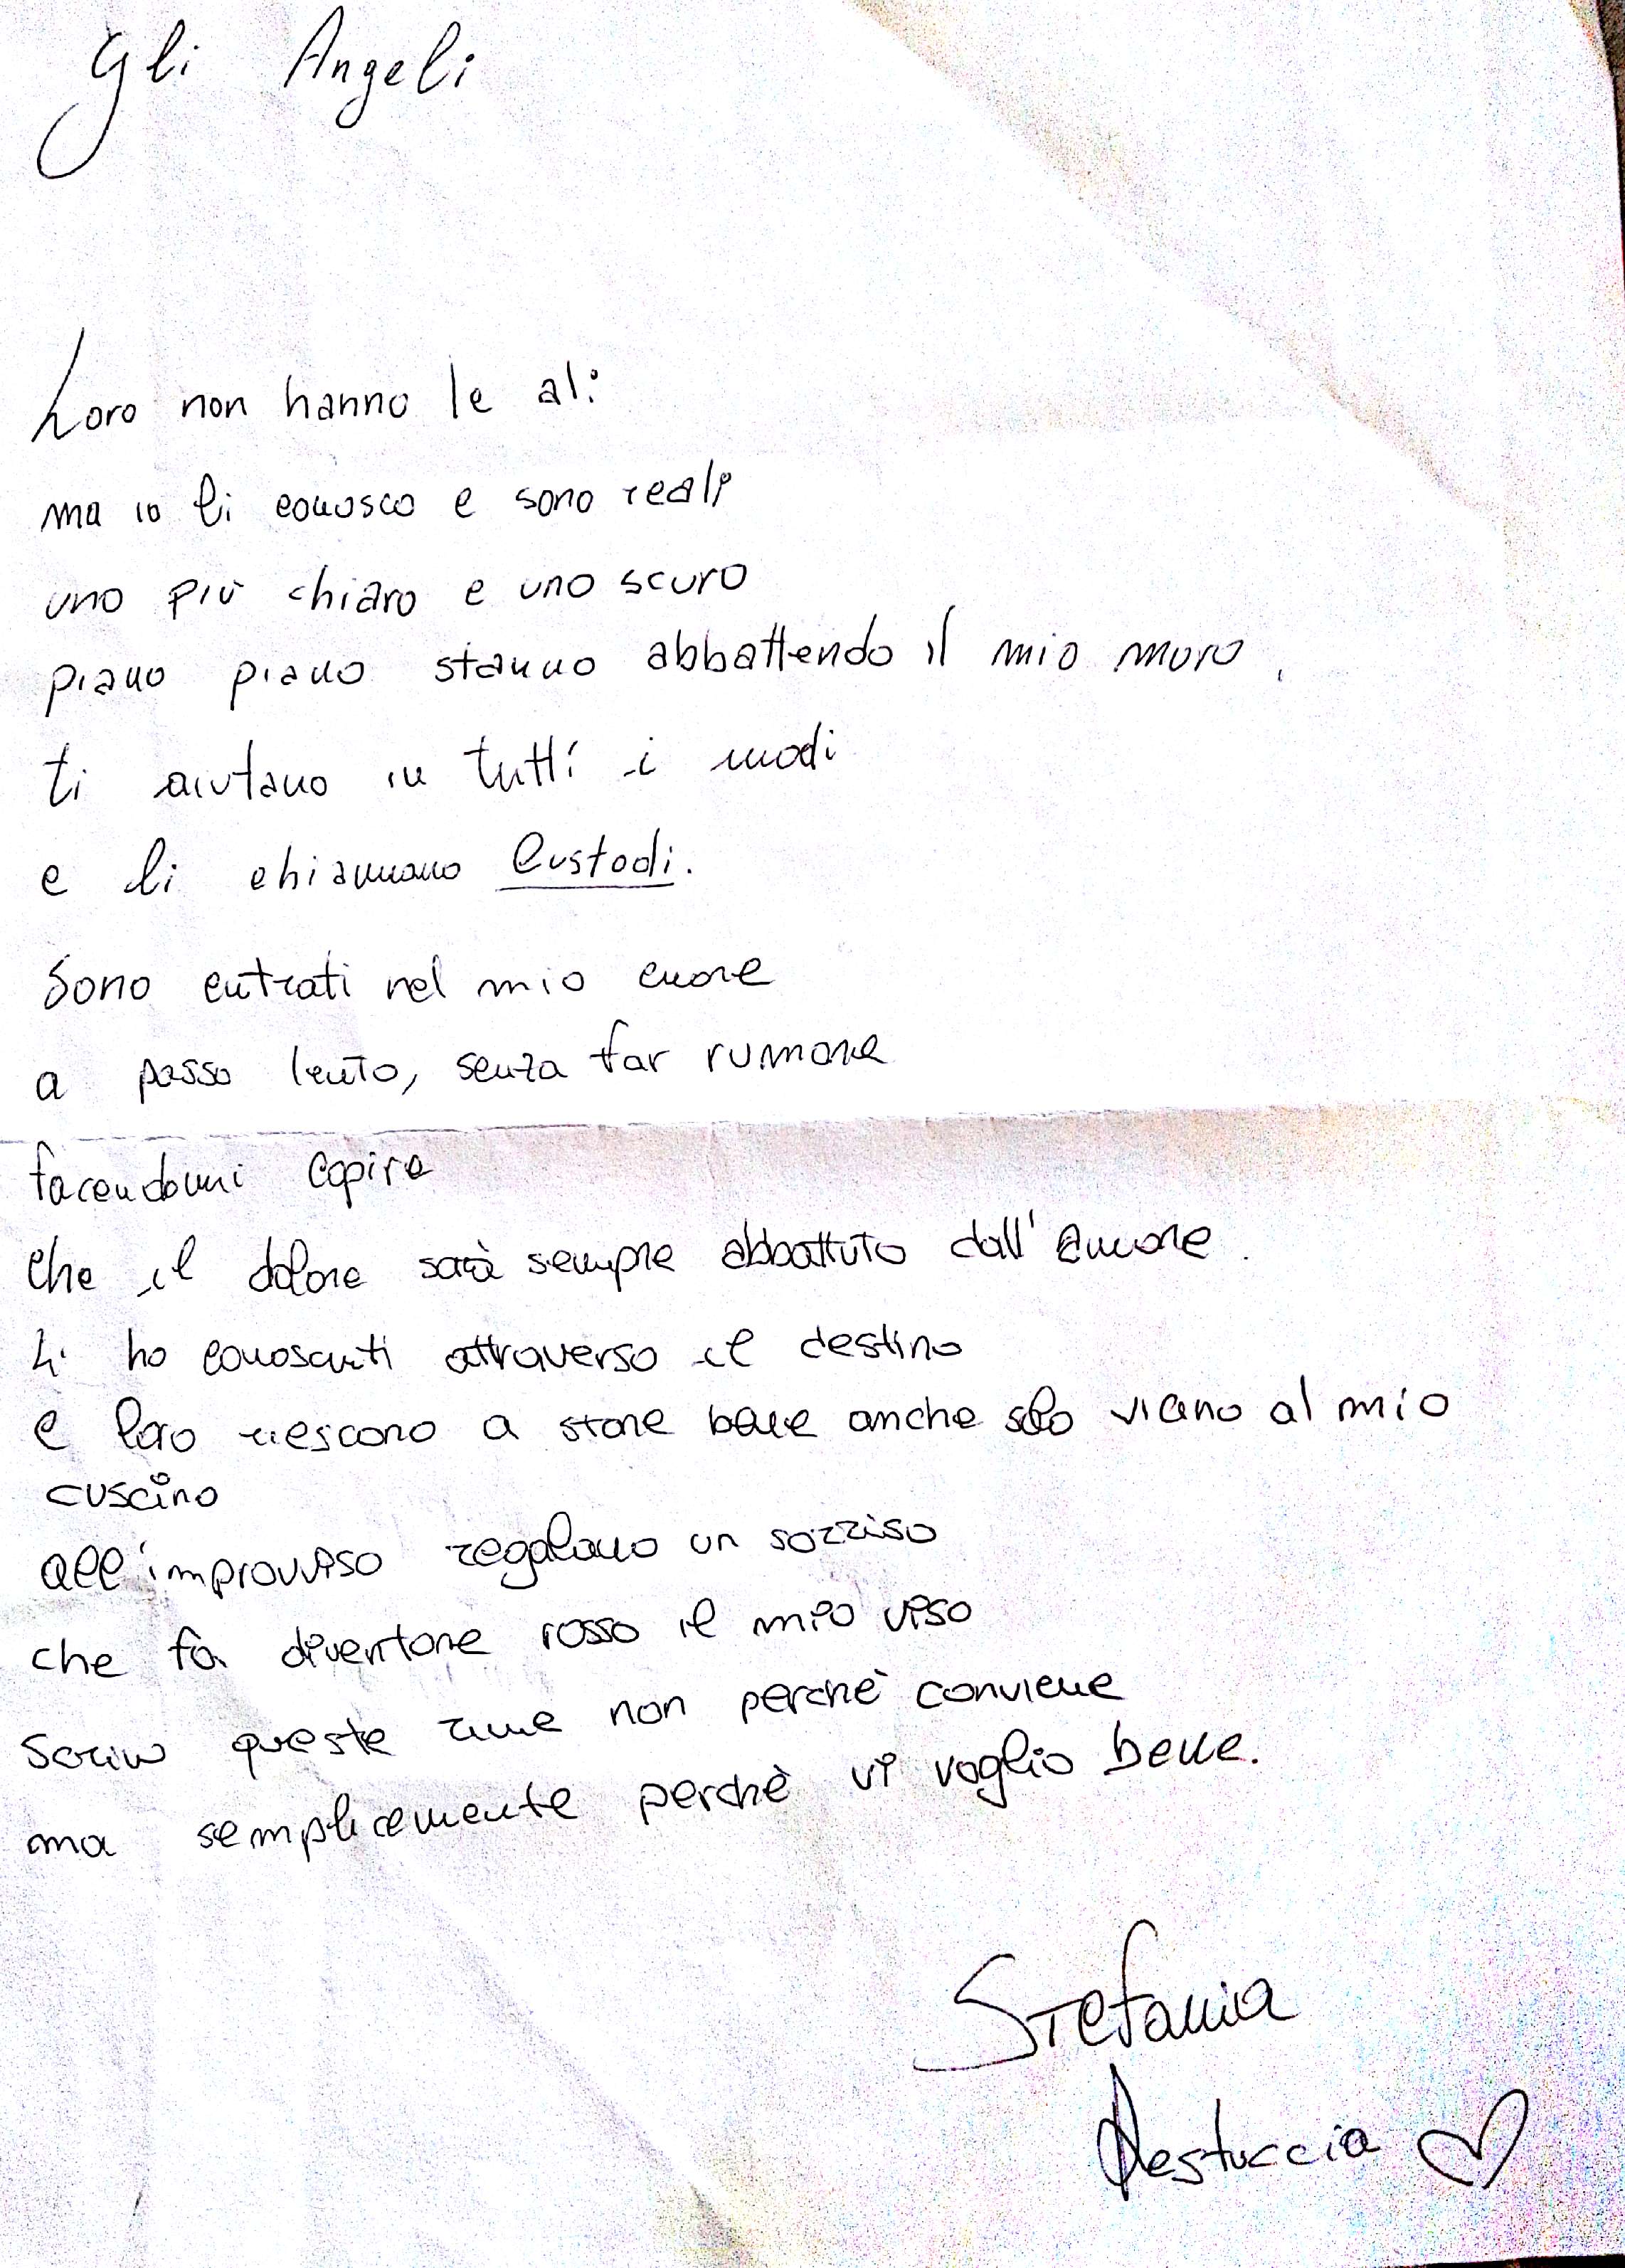 Gli Angeli
Loro non hanno le ali
ma io li conosco e sono reali
uno più chiaro e uno scuro
piano piano stanno abbattendo il mio muro,
ti aiutano in tutti i modi
e li chiamano Custodi.
Sono entrati nel mio cuore
a passo lento, senza far rumore
facendomi capire
che il dolore sarà sempre abbattuto dall'amore.
Li ho conosciuti attraverso il destino
e loro riescono a stare bene anche solo vicino al mio
cuscino
all'improvviso regalano un sorriso
che fa diventare rosso il mio viso
Scrivo queste rime non perchè conviene
ma semplicemente perchè vi voglio bene.
Stefania
Restuccia